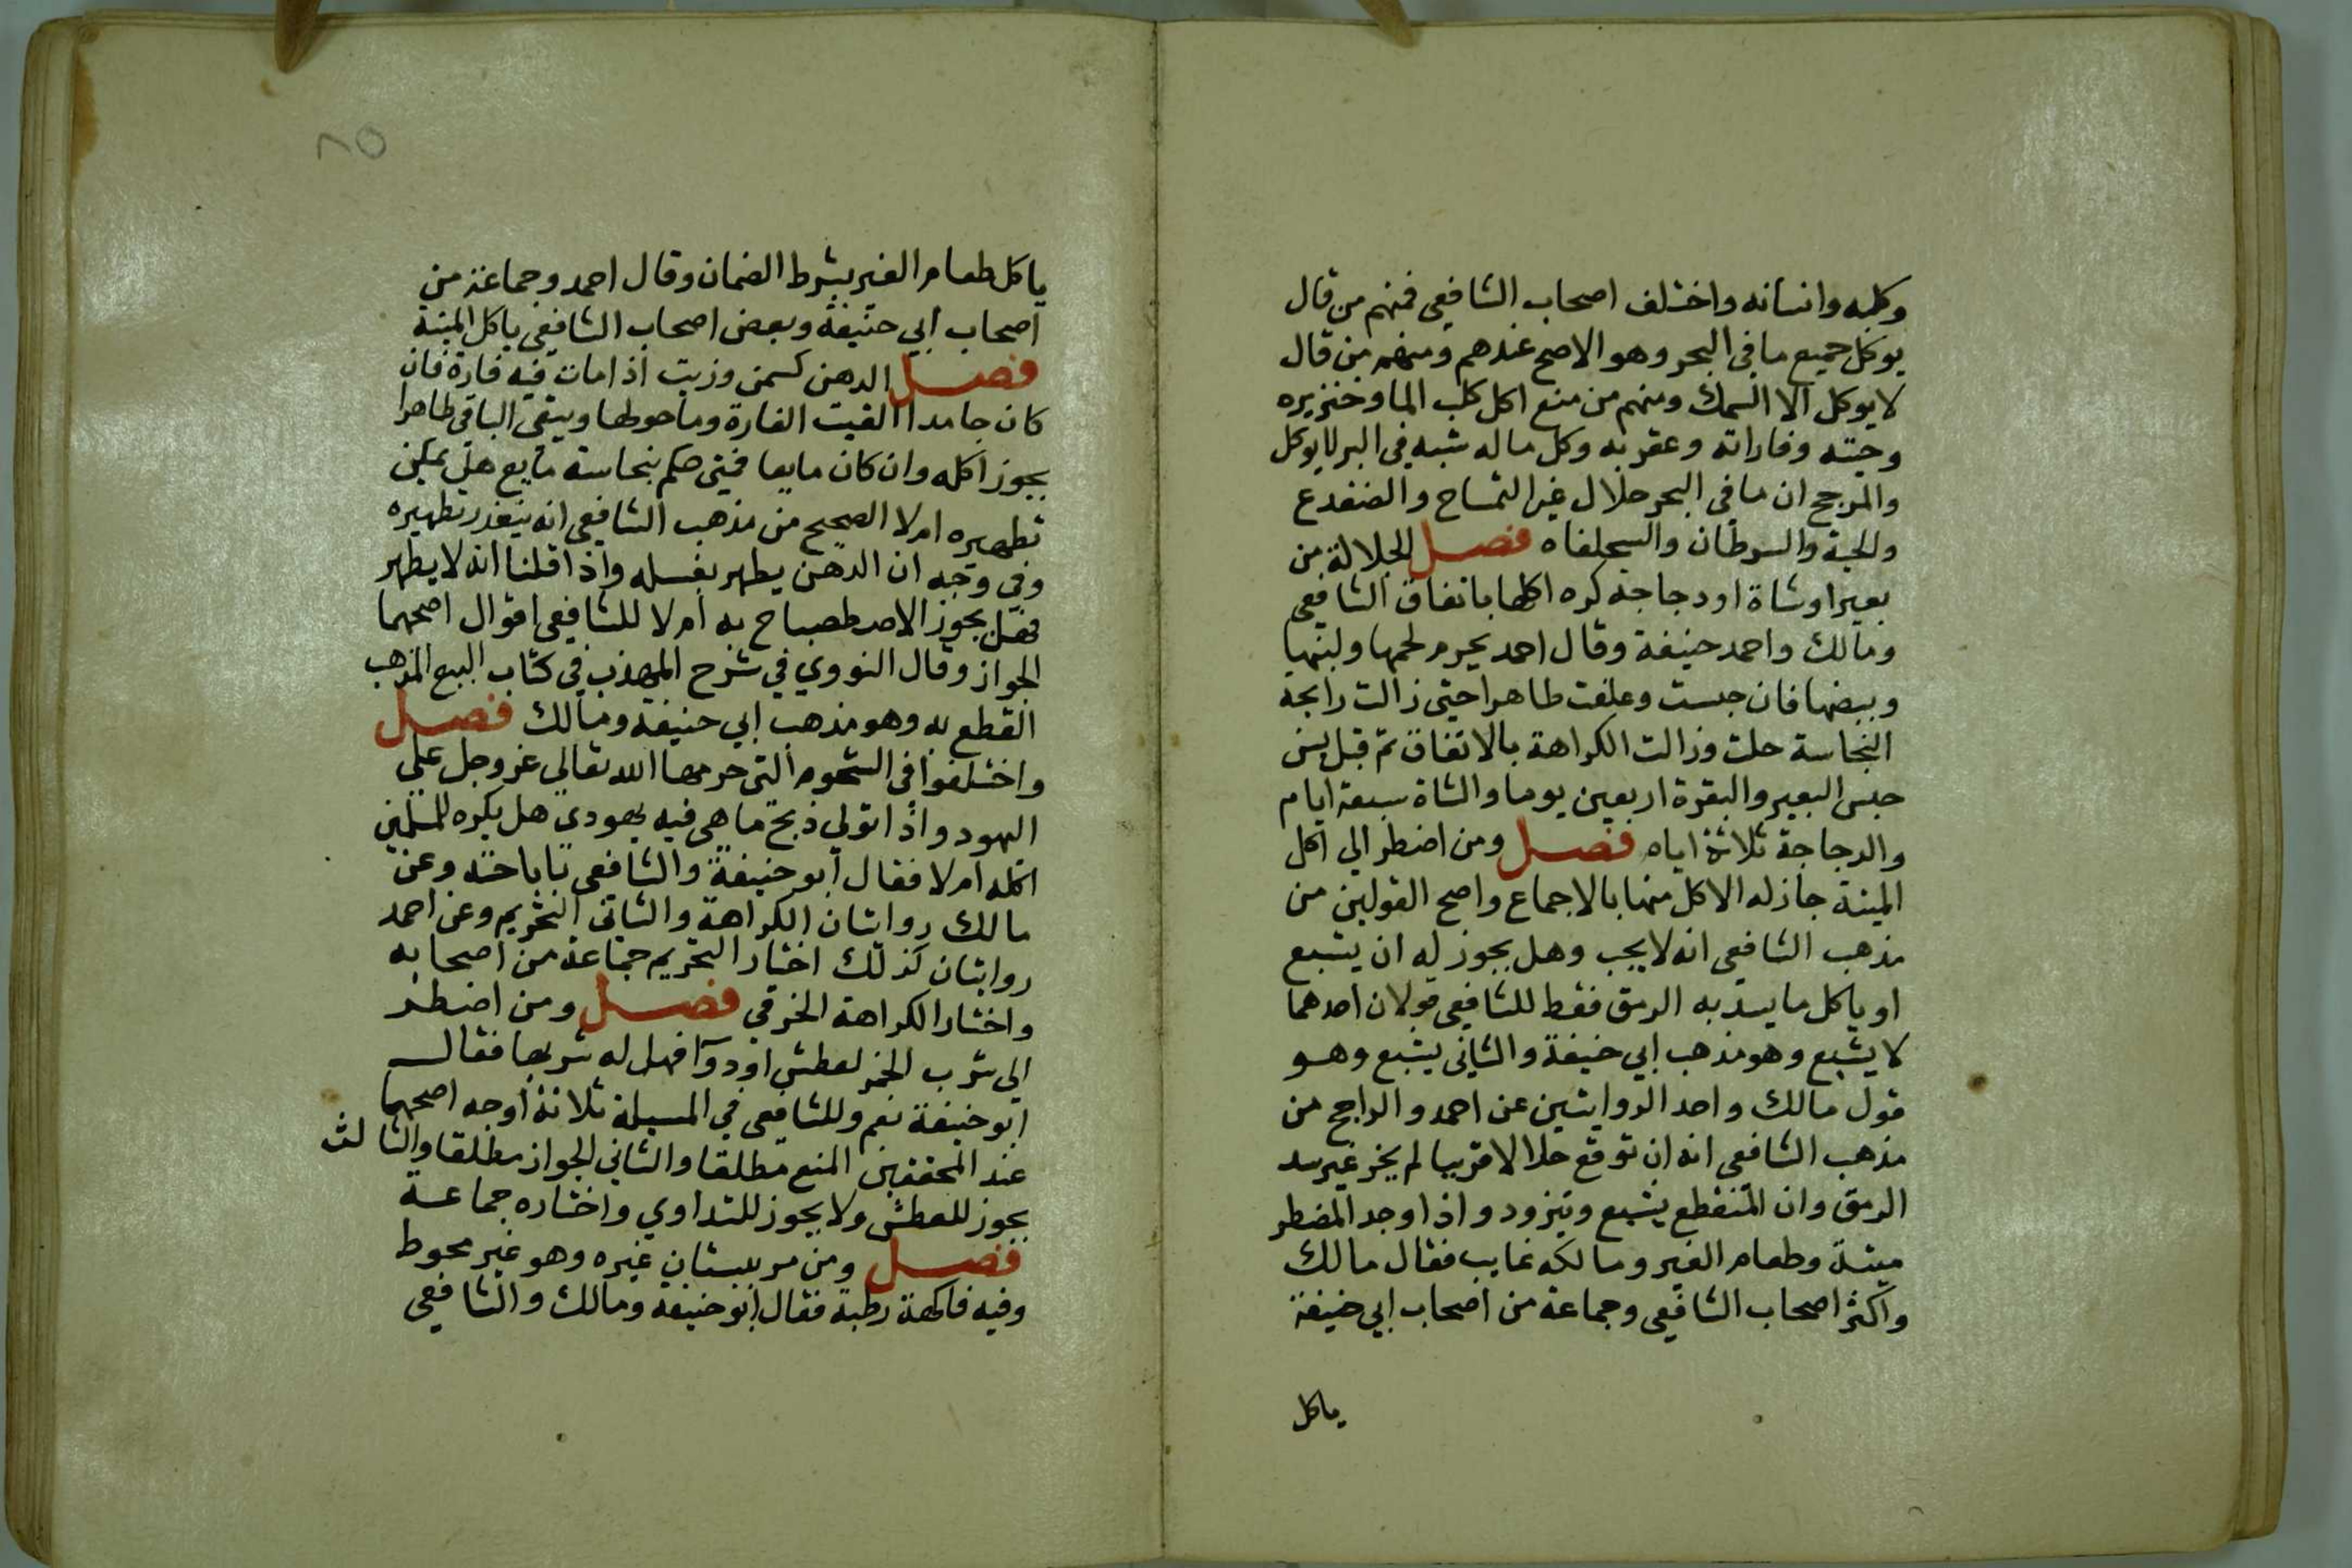 وكلبه وانسانه واختلف اصحاب الشافعي فمنهم من قال
يوكل جميع ما في البحر وهو الاصح عندهم ومنهم من قال
لا يوكل الا السمك ومنهم من منع اكل كلب الما وخنزيره
وحيته وفاراته وعقربه وكل ماله شبه في البر لا يوكل
والمرجح ان ما في البحر حلال غير التمساح والضفدع
والحية والسرطان والسحلفاه فصل الجلالة من
بعير او شاة او دجاجه كره اكلها باتفاق الشافعي
ومالك واحمد حنيفة وقال احمد يحرم لحمها ولبنها
وبيضها فان حبست وعلفت طاهرا حتى زالت رايحة
النجاسة حلت وزالت الكراهة بالاتفاق ثم قيل يسن
حبس البعير والبقرة اربعين يوما والشاة سبعة ايام
والدجاجة ثلاثة ايام فصل ومن اضطر الي اكل
الميتة جاز له الاكل منها بالاجماع واصح القولين من
مذهب الشافعي انه لا يجب وهل يجوز له ان يشبع
او ياكل ما يسد به الرمق فقط للشافعي قولان احدهما
لا يشبع وهو مذهب ابي حنيفة والثاني يشبع وهو
قول مالك واحد الروايتين عن احمد والراجح من
مذهب الشافعي انه ان توقع حلالا قريبا لم يجز غير سد
الرمق وان المنقطع يشبع ويتزود واذا وجد المضطر
ميتة وطعام الغير ومالكه غايب فقال مالك
واكثر اصحاب الشافعي وجماعة من اصحاب ابي حنيفة
ياكل
٨٥
ياكل طعام الغير بشرط الضمان وقال احمد وجماعة من
اصحاب ابي حنيفة وبعض اصحاب الشافعي ياكل الميتة
فصل الدهن كسمن وزيت اذا مات فيه فارة فان
كان جامدا القيت الفارة وما حولها ويبقي الباقي طاهرا
يجوز اكله وان كان مايعا فمتى حكم بنجاسة مايع هل يمكن
تطهيره ام لا الصحيح من مذهب الشافعي انه يتعذر تطهيره
وفي وجه ان الدهن يطهر بغسله واذا قلنا انه لا يطهر
فهل يجوز الاصطصباح به ام لا للشافعي اقوال اصحهما
الجواز وقال النووي في شرح المهذب في كتاب البيع المذهب
القطع به وهو مذهب ابي حنيفة ومالك فصل
واختلفوا في الشحوم التي حرمها الله تعالي عز وجل علي
اليهود واذا تولي ذبح ما هي فيه يهودي هل يكره للمسلمين
اكله ام لا فقال ابو حنيفة والشافعي باباحته وعن
مالك روايتان الكراهة والثاني التحريم وعن احمد
روايتان كذلك اختار التحريم جماعة من اصحابه
واختار الكراهة الخرقي فصل ومن اضطر
الي شرب الخمر لعطش او دوا فهل له شربها فقال
ابو حنيفة نعم وللشافعي في المسيلة ثلاثة اوجه اصحهما
عند المحققين المنع مطلقا والثاني الجواز مطلقا والثالث
يجوز للعطش ولا يجوز للتداوي واختاره جماعة
فصل ومن مر ببستان غيره وهو غير محوط
وفيه فاكهة رطبة فقال ابو حنيفة ومالك والشافعي